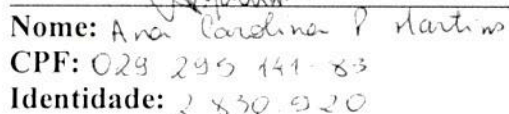 Nome: Ana Carolina P Martins
CPF: 029 295 141-83
Identidade: 2 830 920